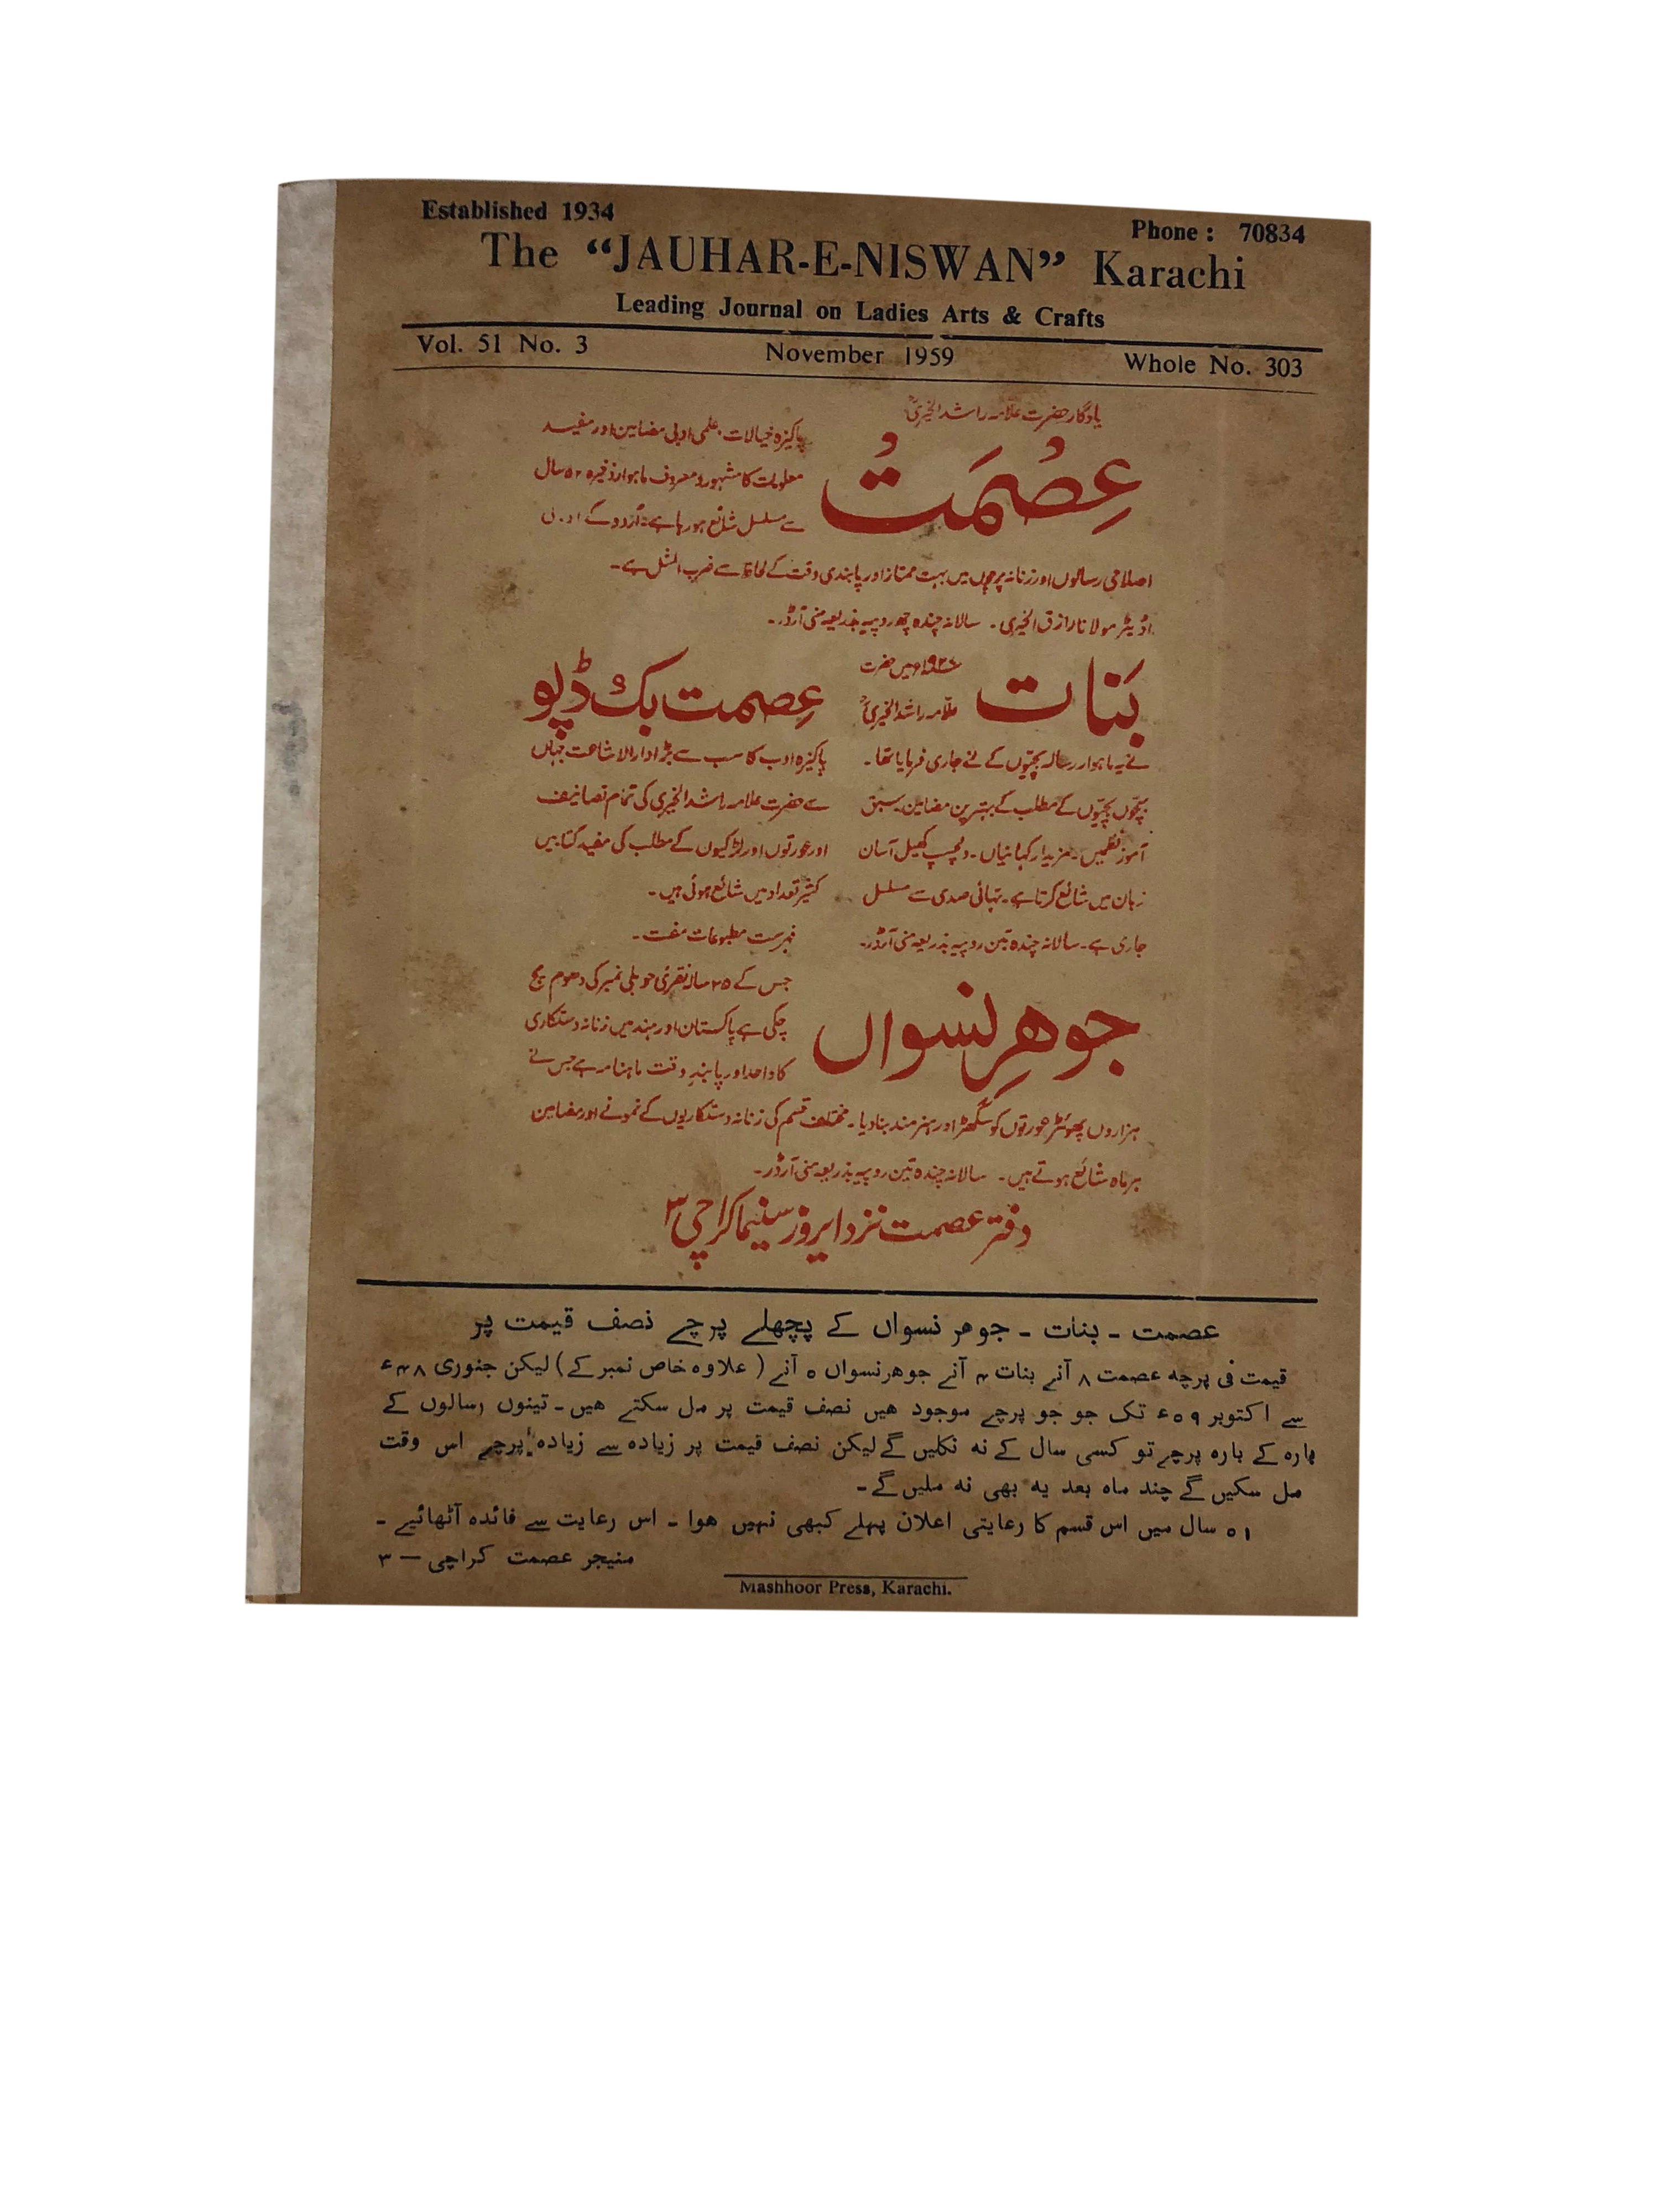 Established 1934
Phone : 70834
The “JAUHAR-E-NISWAN” Karachi
Leading Journal on Ladies Arts & Crafts
Vol. 51 No. 3 November 1959 Whole No. 303
یادگار حضرت علامہ راشد الخیریؒ
عِصُمَتُ
پاکیزہ خیالات، علمی ادبی مضامین اور مفید
معلومات کا مشہور و معروف ماہوار ذخیرہ ۵۲ سال
سے مسلسل شائع ہو رہا ہے۔ اُردو کے ادبی
اصلاحی رسالوں اور زنانہ پرچوں میں بہت ممتاز اور پابندی وقت کے لحاظ سے ضرب المثل ہے۔
اڈیٹر مولانا رازق الخیری۔ سالانہ چندہ چھ روپیہ بذریعہ منی آرڈر۔
بَنات
۱۹۲۷ء میں حضرت
علّامہ راشد الخیریؒ
نے یہ ماہوار رسالہ بچیّوں کے لئے جاری فرمایا تھا۔
بچّوں بچیّوں کے مطلب کے بہترین مضامین۔ سبق
آموز نظمیں۔ مزیدار کہانیاں۔ دلچسپ کھیل آسان
زبان میں شائع کرتا ہے۔ تہائی صدی سے مسلسل
جاری ہے۔ سالانہ چندہ تین روپیہ بذریعہ منی آرڈر۔
عِصمت بک ڈپو
پاکیزہ ادب کا سب سے بڑا دارالاشاعت جہاں
سے حضرت علامہ راشد الخیری کی تمام تصانیف
اور عورتوں اور لڑکیوں کے مطلب کی مفید کتابیں
کثیر تعداد میں شائع ہوئی ہیں۔
فہرست مطبوعات مفت۔
جوهرِ نسواں
جس کے ۲۵ سالہ نقرئی جوبلی نمبر کی دھوم مچ
چکی ہے پاکستان اور ہند میں زنانہ دستکاری
کا واحد اور پابندِ وقت ماہنامہ ہے جس نے
ہزاروں پھوہڑ عورتوں کو سُگھڑ اور ہنرمند بنادیا۔ مختلف قسم کی زنانہ دستکاریوں کے نمونے اور مضامین
ہر ماہ شائع ہوتے ہیں۔ سالانہ چندہ تین روپیہ بذریعہ منی آرڈر۔
دفتر عصمت نزد ایروز سنیما کراچی ۳
عصمت ـ بنات ـ جوهر نسواں کے پچھلے پرچے نصف قیمت پر
قیمت فی پرچه عصمت ۸ آنے بنات ۴ آنے جوهر نسواں ۵ آنے ( علاوہ خاص نمبر کے) لیکن جنوری ۴۸ء
سے اکتوبر ۵۹ء تک جو جو پرچے موجود هیں نصف قیمت پر مل سکتے هیں ـ تینوں رسالوں کے
بارہ کے بارہ پرچے تو کسی سال کے نہ نکلیں گے لیکن نصف قیمت پر زیادہ سے زیادہ پرچے اس وقت
مل سکیں گے چند ماہ بعد یہ بھی نہ ملیں گے ـ
۵۱ سال میں اس قسم کا رعایتی اعلان پہلے کبھی نہیں هوا ـ اس رعایت سے فائدہ اُٹھائیے ـ
منیجر عصمت کراچی — ۳
Mashhoor Press, Karachi.